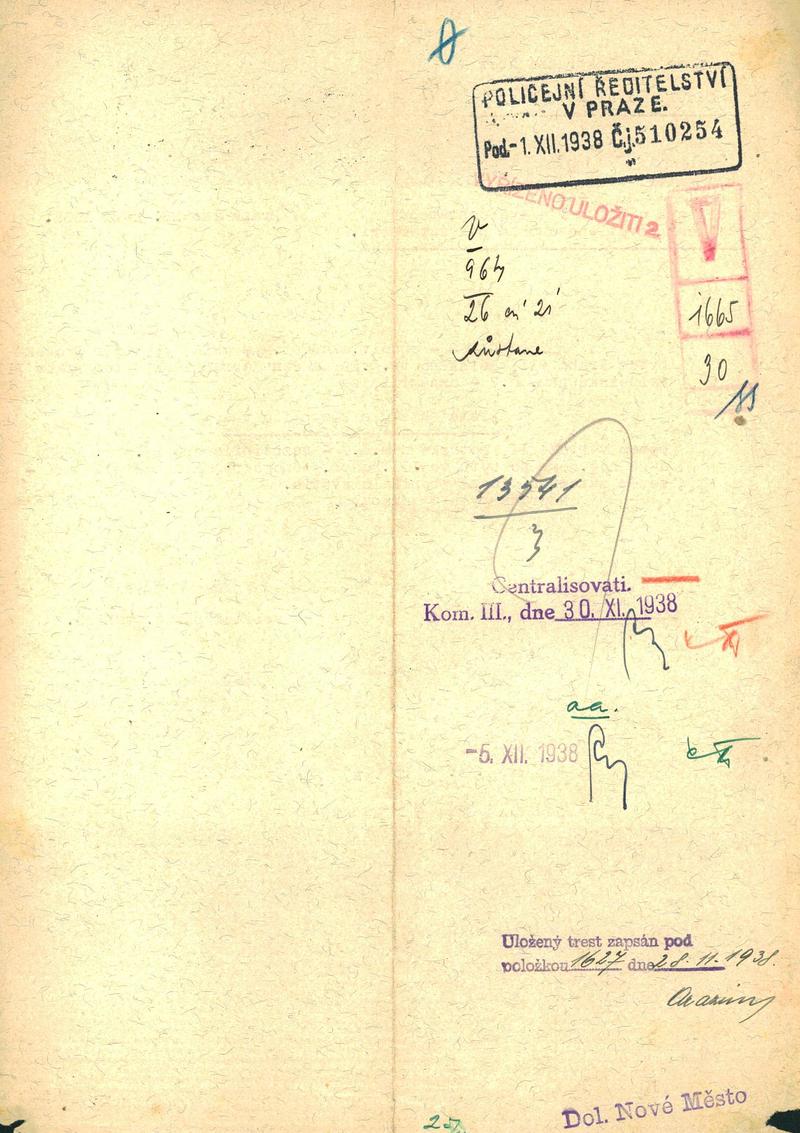 POLICEJNÍ ŘEDITELSTVÍ
V PRAZE.
Pod. -1. XII. 1938 Čj. 510254
VYŘÍZENO: ULOŽITI 2
V
1665
30
964
26
zůstane
13541
3
Centralisovati.
Kom. III., dne 30. XI. 1938
aa.
-5. XII. 1938
Uložený trest zapsán pod
položkou 1627 dne 28. 11. 1938.
Dol. Nové Město